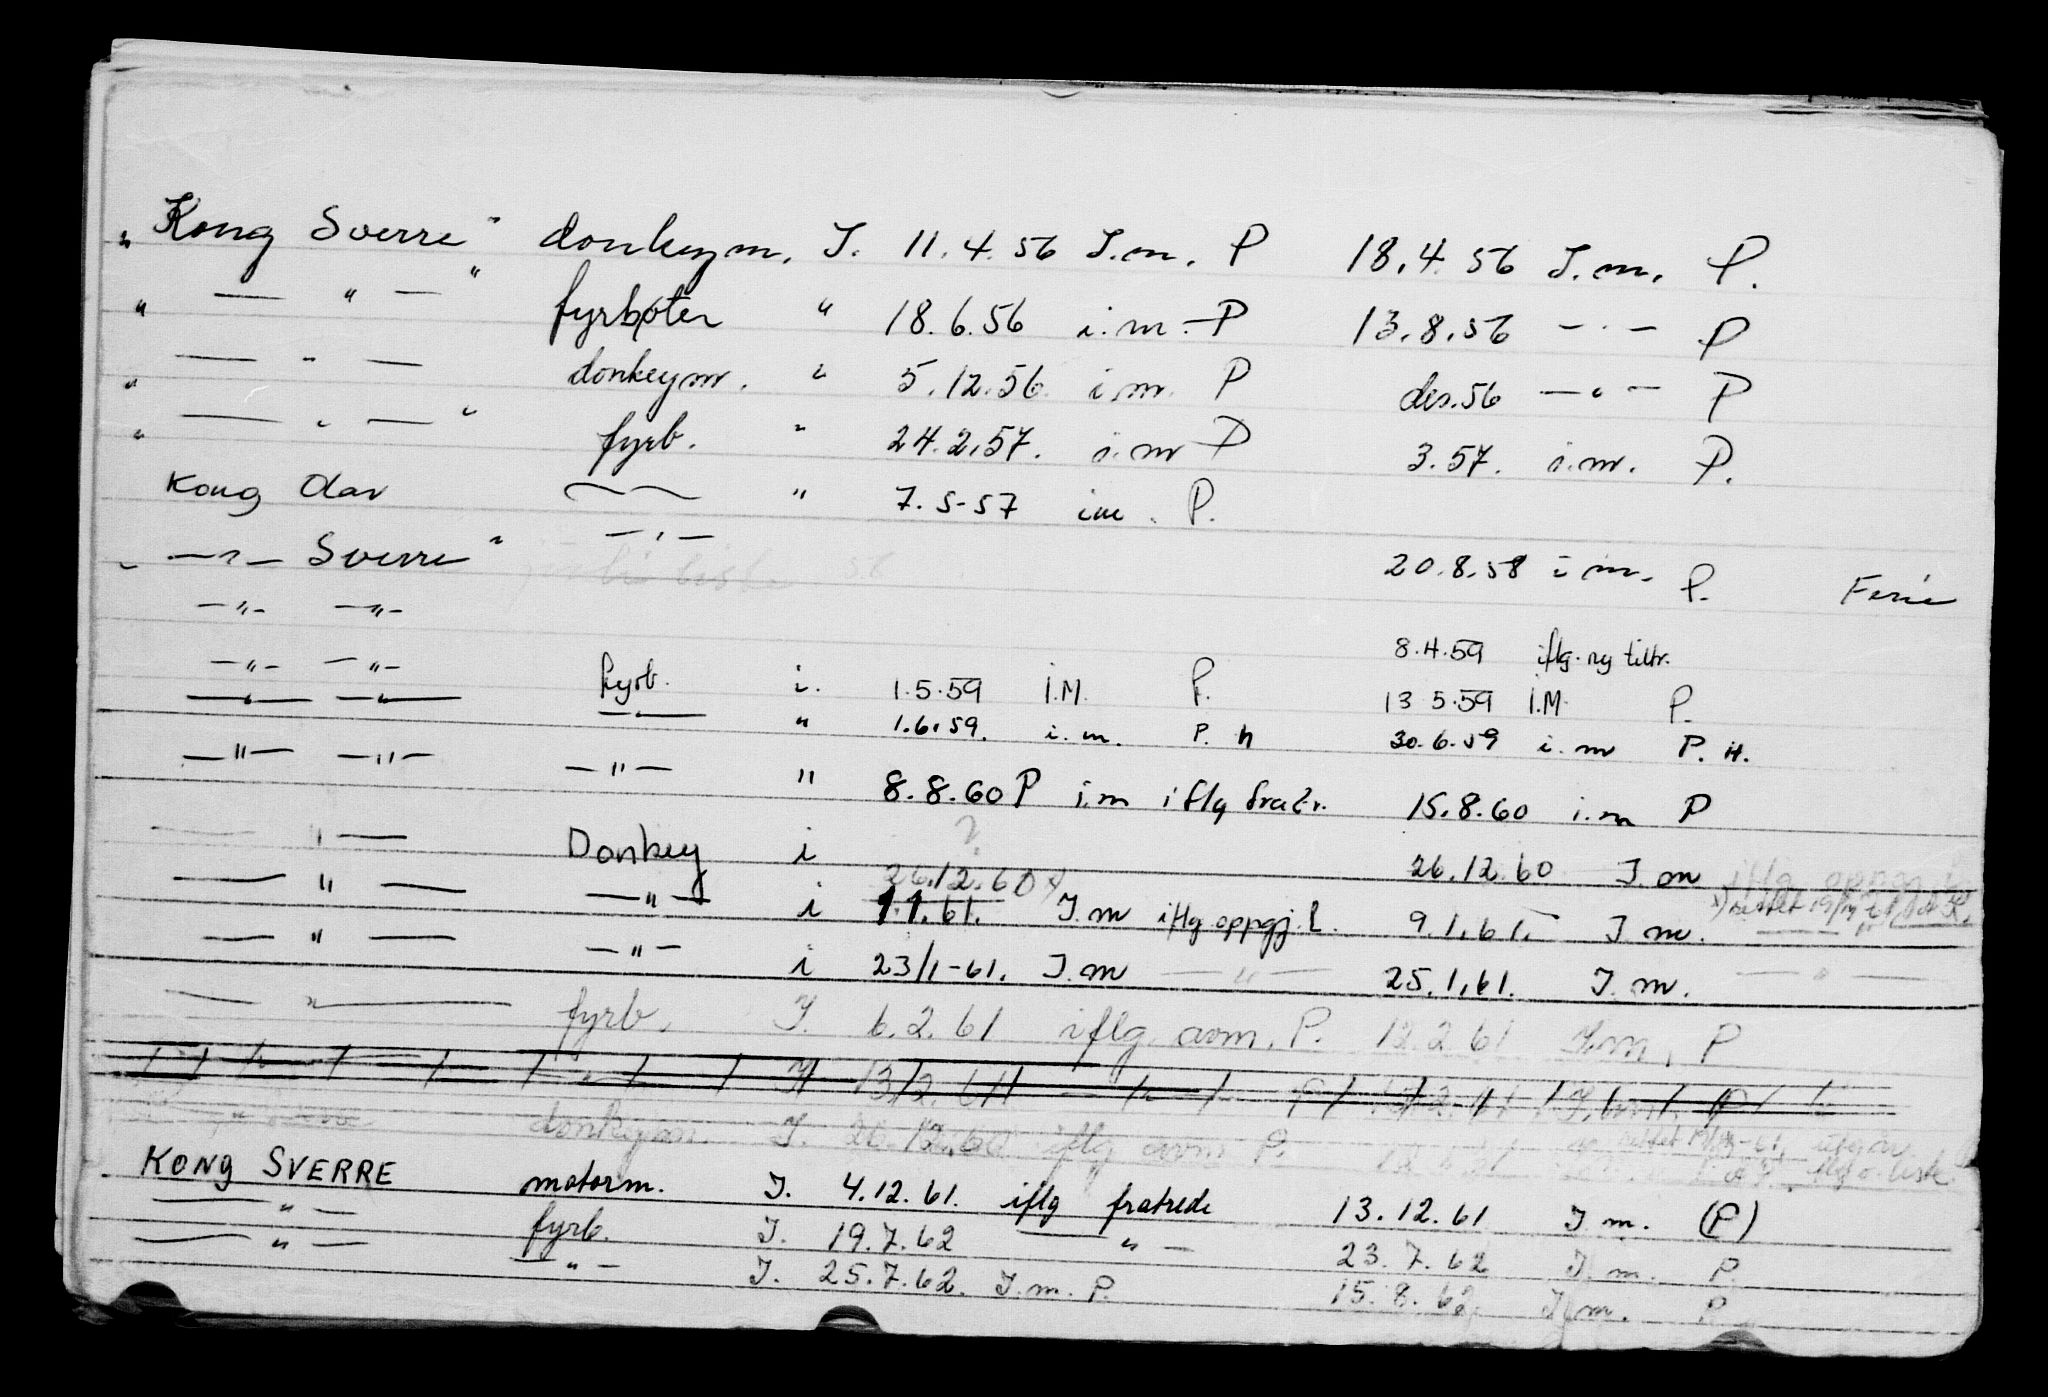 „ Kong Sverre " donkeym. I. 11.4.56 I.m. P 18.4.56 I.m. P.
" — " — " fyrbøter " 18.6.56 i.m. P 13.8.56 — · — P
— " — donkeym. " 5.12.56 i.m. P des.56 — " — P
" — " — " fyrb. " 24.2.57. i.m P 3.57. i.m. P.
" Kong Olav — " 7.5-57 i.m. P.
„ —"— Sverre " —"— 20.8.58 i m. P. Ferie
—"— —"— 8.4.59 iflg. ny tiltr.
—"— —"— fyrb. i. 1.5.59 I.M. P. 13 5.59 I.M. P.
—"— —"— —"— " 1.6.59. i.m. P. H 30.6.59 i.m P. H.
—"— —"— —"— " 8.8.60 P i.m iflg fratr. 15.8.60 i.m P
— " — Donkey i ? 26.12.60 I.m iflg
26.12.60 x)
— " — —"— i 1.1.61. I.m iflg oppgj. 9.1.61. I m.
— " — —"— i 23/1-61. I.m — " — 25.1.61. I.m. — " —
— " — fyrb. I. 6.2.61 iflg. avm. P. 12.2 61 I.m. P
— " — — " — I 13/2.61 — " — P
donkeym. I. 26.12.60 iflg avm P.
KONG SVERRE motorm. I. 4.12.61. iflg fratrede 13.12.61 I m. (P)
— " — fyrb. I. 19.7.62 — " — 23.7.62 I.m. P.
— " — — " — I. 25.7.62. I.m. P. 15.8.62 I.m. P.